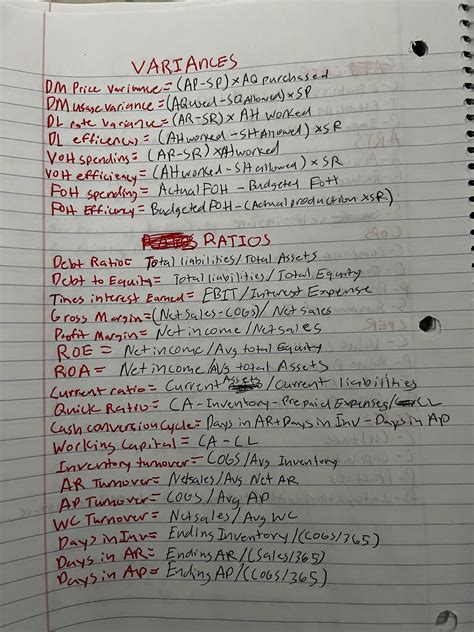 VARIANCES
DM Price variance = (AP-SP) × AQ purchased
DM usage variance = (AQ used - SQ Allowed) × SP
DL rate variance = (AR-SR) × AH worked
DL efficency = (AH worked - SH Allowed) × SR
VOH spending = (AP-SR) × AH worked
VOH efficiency = (AH worked - SH allowed) × SR
FOH spending = Actual FOH - Budgeted FOH
FOH Efficency = Budgeted FOH - (Actual production × SR)
RATIOS
Debt Ratio = Total liabilities / Total Assets
Debt to Equity = Total liabilities / Total Equity
Times interest Earned = EBIT / Interest Expense
Gross Margin = (Net Sales - COGS) / Net sales
Profit Margin = Net income / Net sales
ROE = Net income / Avg total Equity
ROA = Net income / Avg total Assets
Current ratio = Current Assets / Current liabilities
Quick Ratio = CA - Inventory - Prepaid Expenses / CL
Cash conversion Cycle = Days in AR + Days in Inv - Days in AP
Working Capital = CA - CL
Inventory turnover = COGS / Avg Inventory
AR Turnover = Net sales / Avg Net AR
AP Turnover = COGS / Avg AP
WC Turnover = Net sales / Avg WC
Days in Inv = Ending Inventory / (COGS/365)
Days in AR = Ending AR / (Sales/365)
Days in AP = Ending AP / (COGS/365)